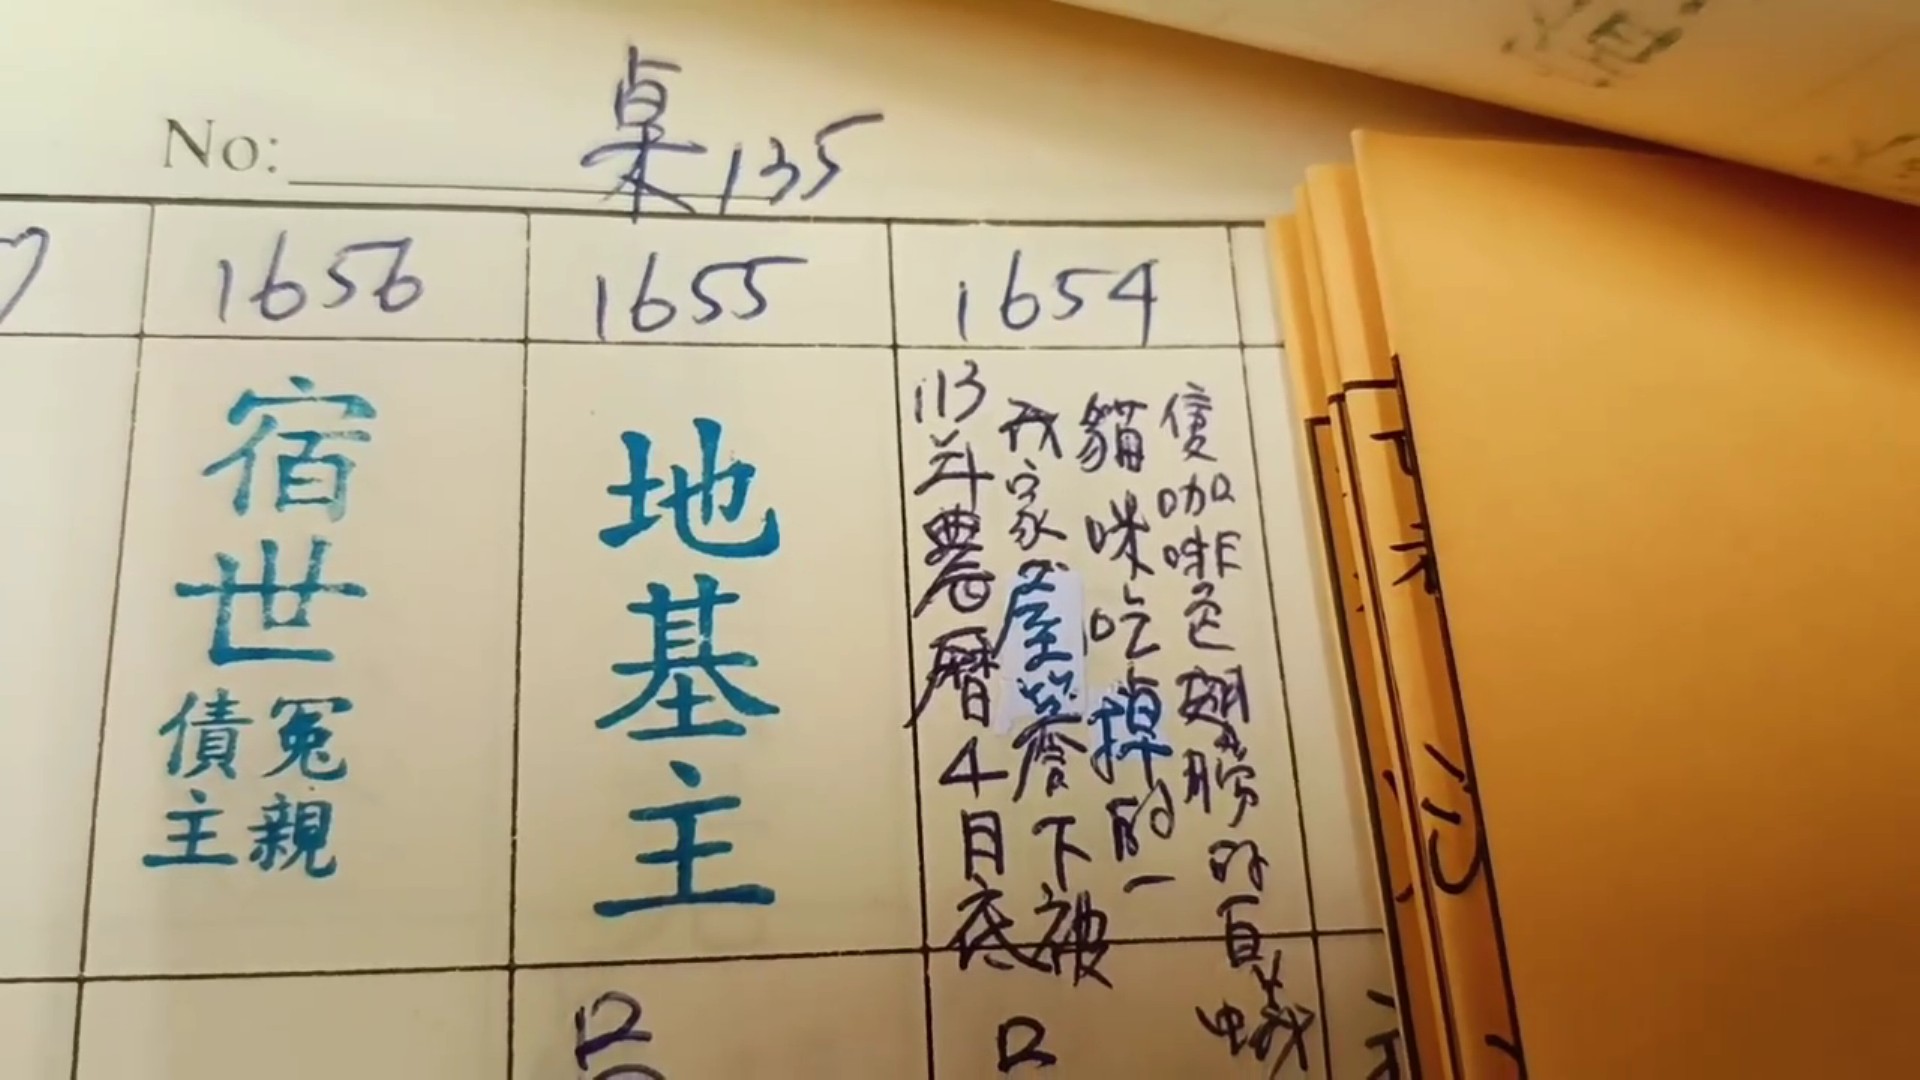 No: 桌135
1656
1655
1654
宿世
債主
冤親
地基主
113年農曆4月底
我家屋簷下被
貓咪吃掉的一
隻咖啡色翅膀的白蛾